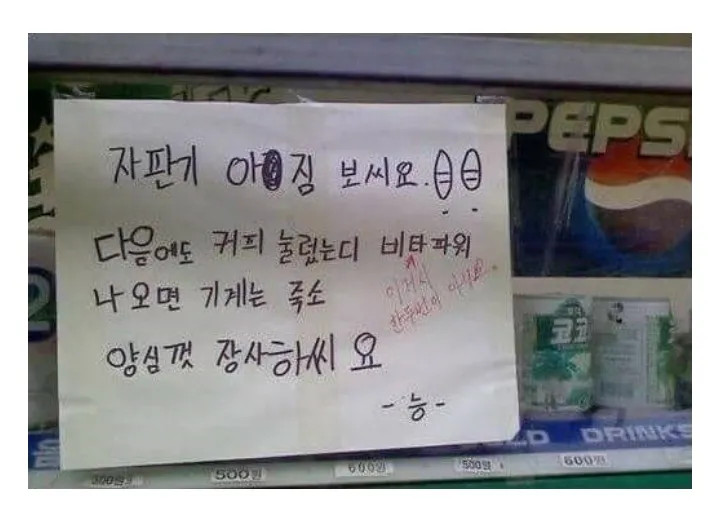 PEPSI
자판기 아짐 보씨요.
다음에도 커피 눌렀는디 비타파워
나오면 기계는 죽소
이거시
한두번이 아니요.
양심껏 장사하씨요
-능-
코코
COLD DRINKS
300원 500원 600원 500원 600원